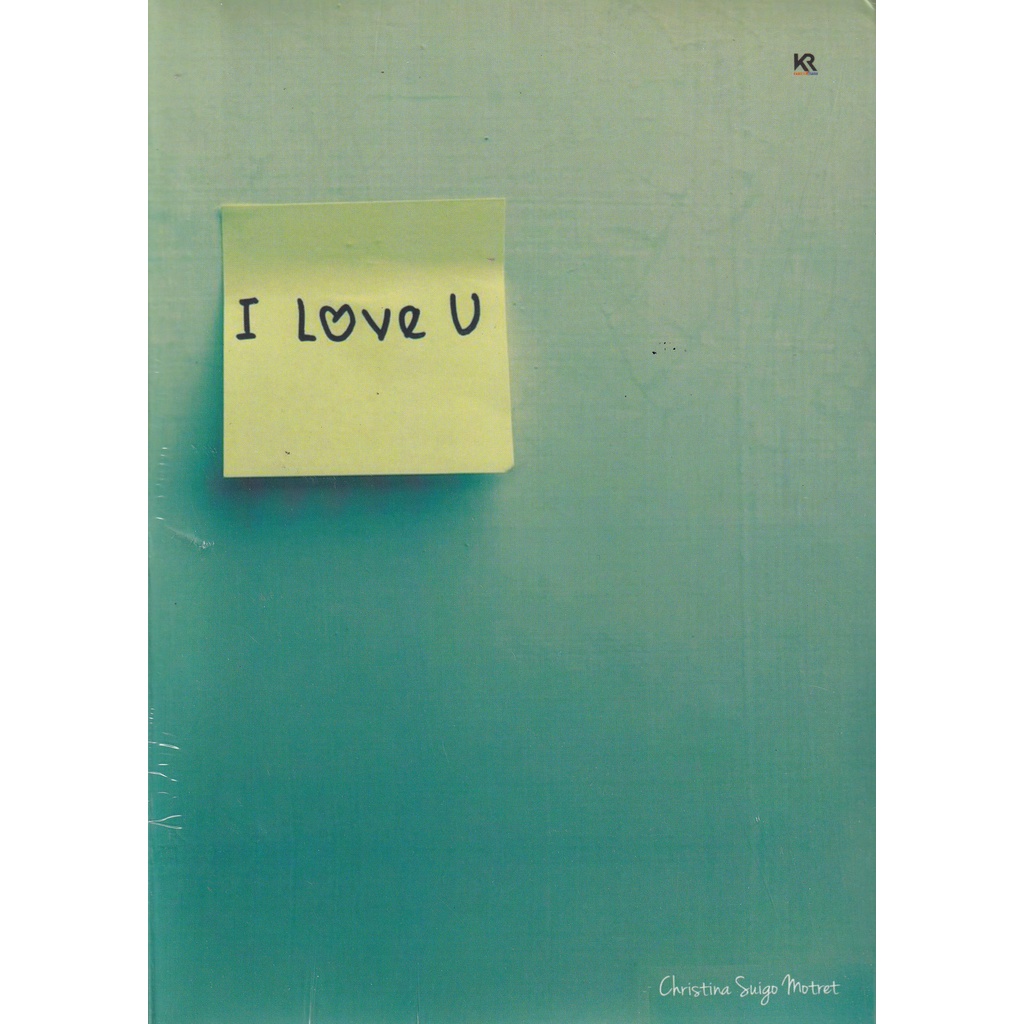 KR
I Love U
Christina Suigo Motret